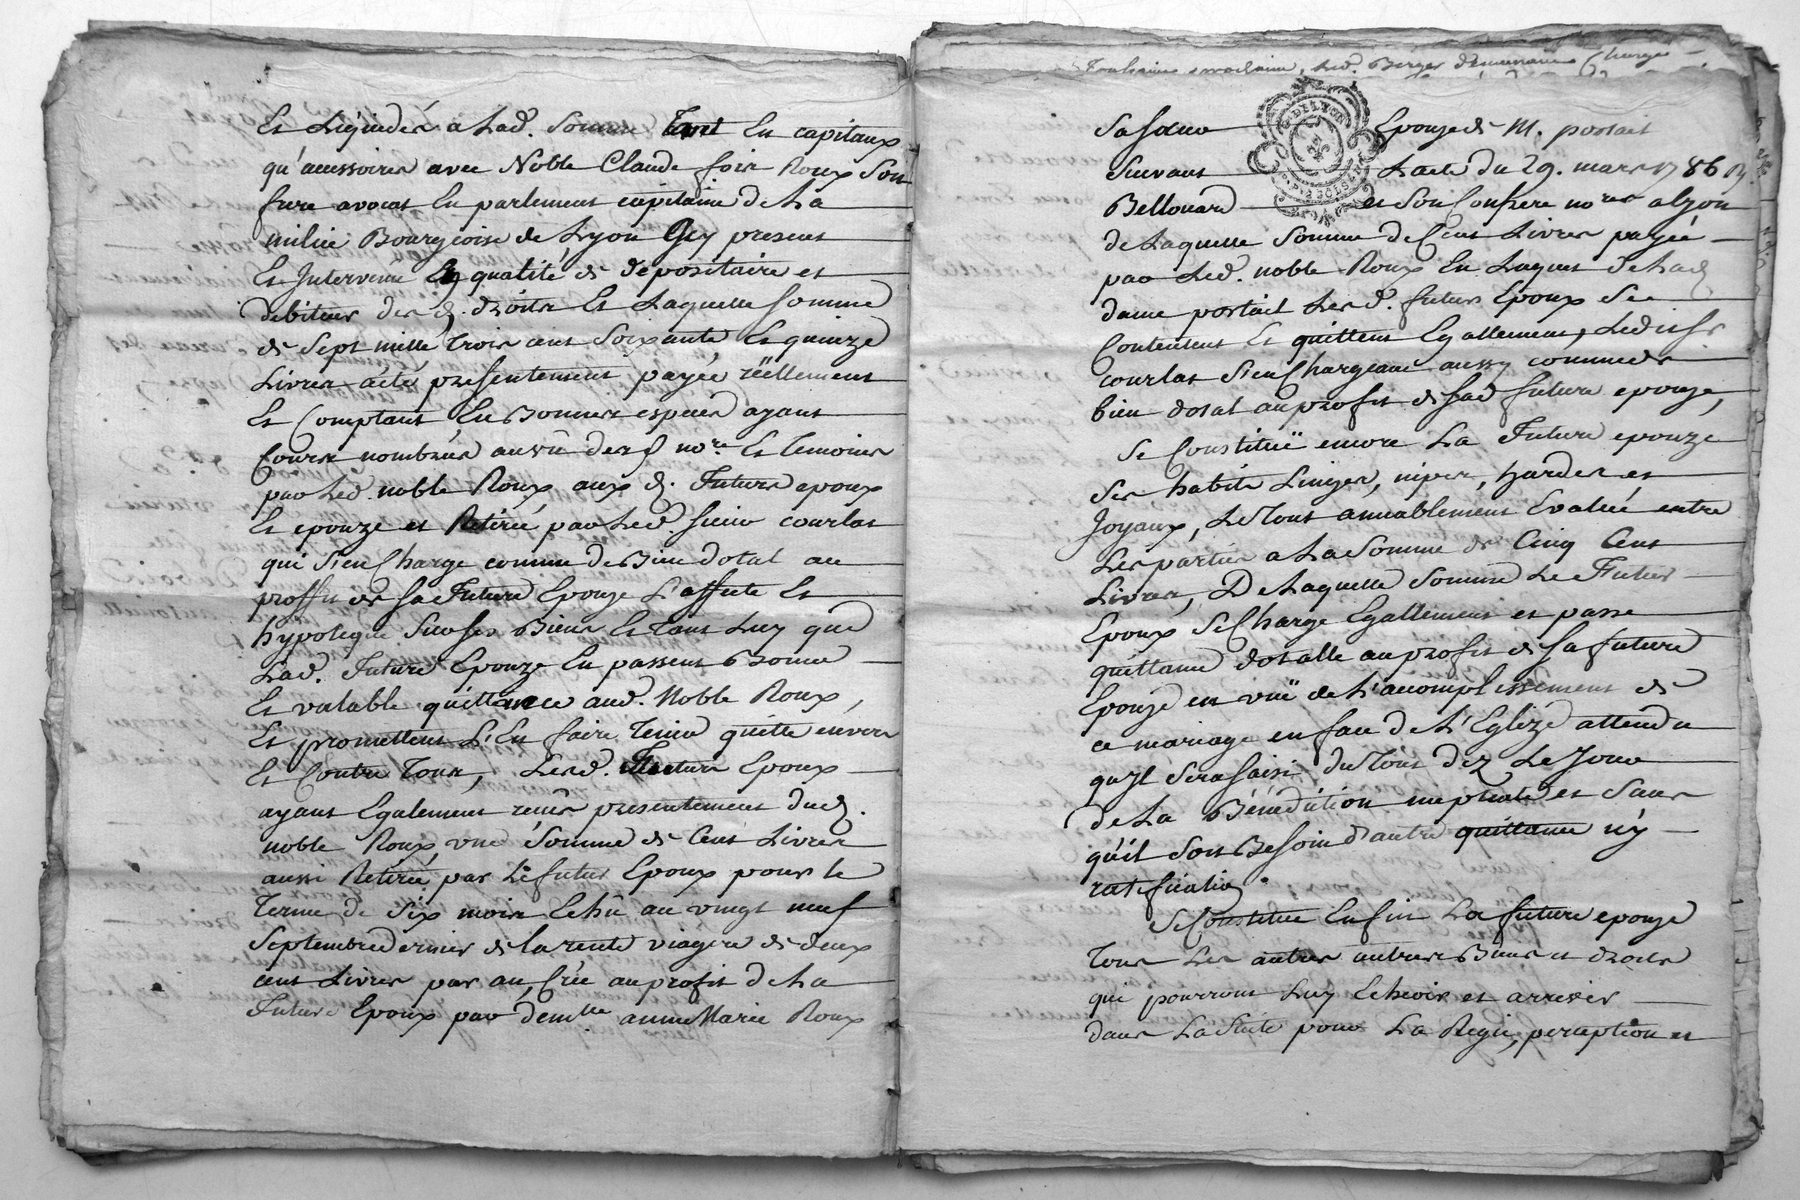 Et Liquidés a Lad. Somme tant En capitaux
qu'accessoires avec Noble Claude foix Roux Son
frere avocat En parlement capitaine de La
milice Bourgeoise de Lyon Icy present
Et Intervenu En qualité de depositaire et
debiteur des d. droits Et Laquelle somme
de Sept mille trois cent soixante Et quinze
Livres a été presentement payée réellement
Et Comptant En Bonnes especes ayant
Cours nombrées au vû des no.re Et temoins
par Led. noble Roux aux d. Futurs epoux
Et epouze et Retirée par Led. sieur courlat
qui s'en Charge comme de Bien dotal au
proffit de sa Future Epouze L'affecte Et
hypoteque Sur ses Biens Et tant Luy que
Lad. Future Epouze En passent Bonne
Et valable quittance aud. Noble Roux,
Et promettent L'En faire tenir quitte envers
Et Contre tous, Lesd. Futurs Epoux
ayant Egalement reçus presentement dud.
noble Roux une Somme de Cent Livres
aussi Retirée par le futur Epoux pour le
terme de Six mois Echû au vingt neuf
Septembre dernier de la rente viagere de deux
cent Livres par an, Créé au profit de La
Future Epoux par dem.lle anne Marie Roux
prochaine, Led. Berger Charge
Sa soeur Epouze de M. portait
Suivant L'acte du 29. mars 1786
Bellouard et Son Confrere no.res a Lyon
de Laquelle Somme de Cent Livres payée
par Led. noble Roux En Laquet de Lad.
dame portait Lesd. futurs Epoux Se
Contentent Et quittent Egallement, Ledit Sr.
courlat s'en Chargeant aussy comme de
bien dotal au profit de sad. future epouze,
Se Constitüe encore La Future epouze
Ses habits Linges, nipes, hardes et
Joyaux, Le Tout amiablement Evalué entre
Les parties a La Somme de Cinq Cent
Livres, De Laquelle Somme Le Futur
Epoux se Charge Egallement et passe
quittance dotalle au profit de sa future
Epouze en vuë de L'acomplissement de
ce mariage en face de L'Eglize attendu
qu'yl sera saisi du Tout dez Le Jour
de La Bénédiction nuptiale et Sans
qu'il soit Besoin d'autre quittance n'y
ratification.
Se Constitue Enfin La future epouze
Tous Les autres autres Biens et droits
qui pourront Luy Echeoir et arriver
dans La Suite pour La Regie, perception et